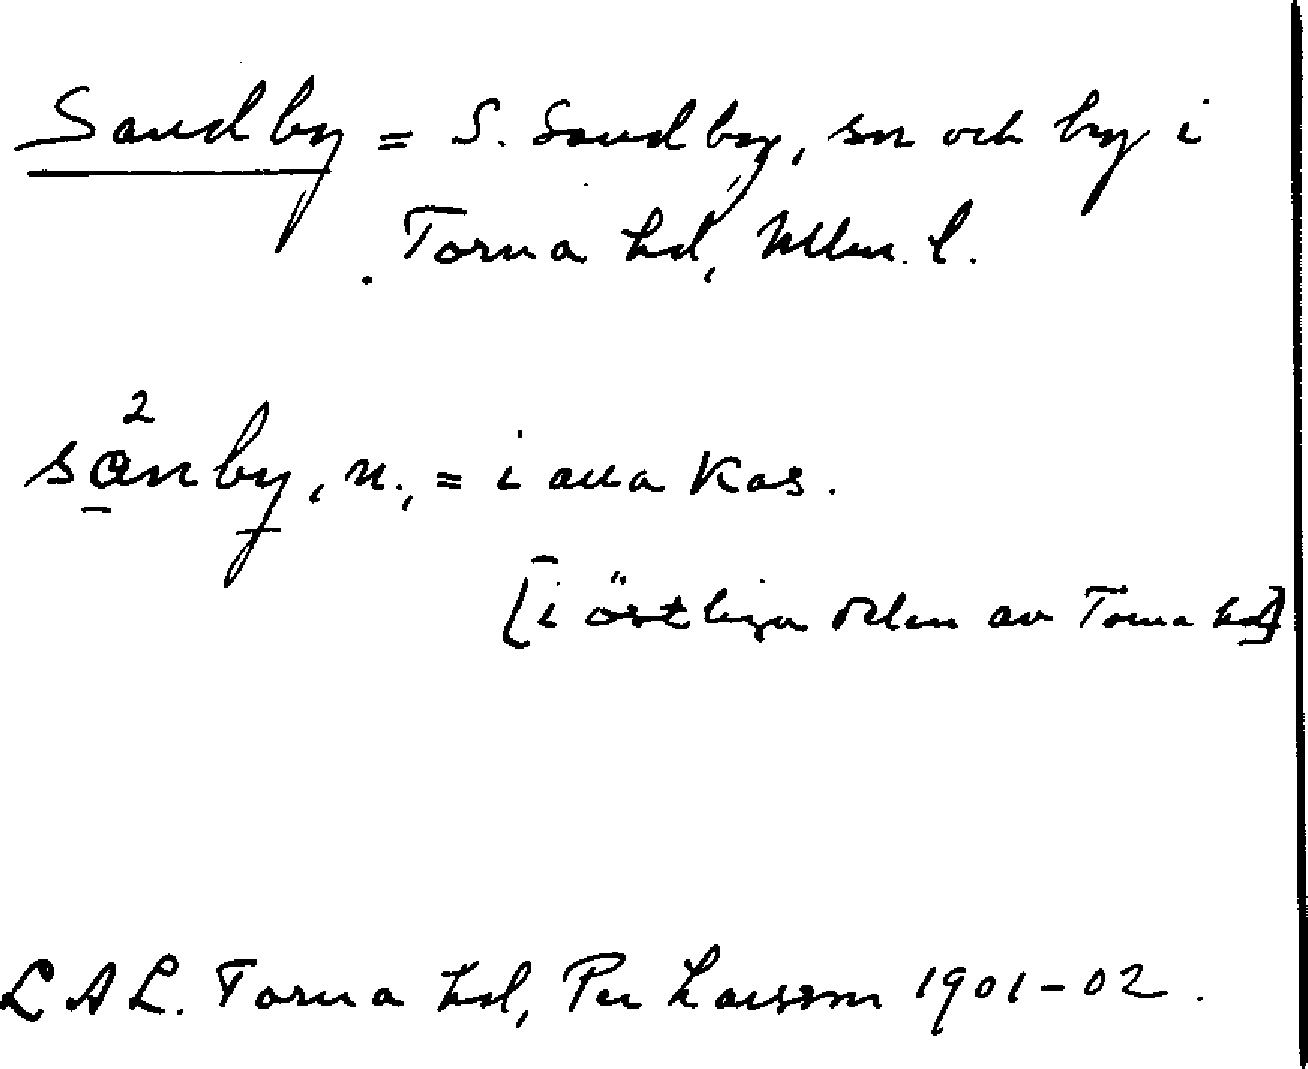 Sandby = S. Sandby, sn och by i
Torna hd, Mlm. l.
sa²nby, n., = i alla kas.
[i östliga delen av Torna hd]
LAL. Torna hd, Per Larsson 1901-02.